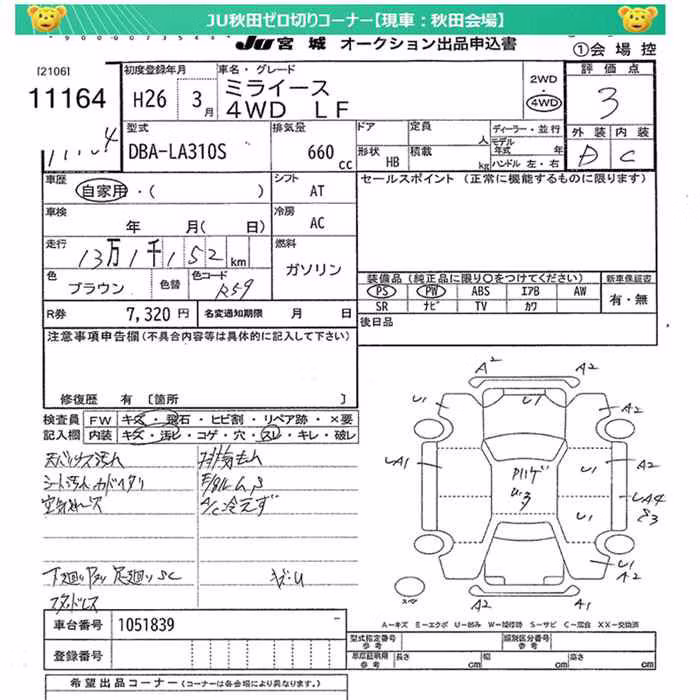 JU秋田ゼロ切りコーナー【現車：秋田会場】
JU 宮城 オークション出品申込書
①会場控
[2106]
11164
初度登録年月
H26 3月
車名・グレード
ミライース
4WD LF
2WD
・
4WD
評価点
3
外装 内装
D C
型式
DBA-LA310S
排気量
660 cc
ドア
定員 人
形状
HB
積載 kg
ディーラー・並行
モデル
年式 年
ハンドル 左・右
車歴
自家用・( )
シフト
AT
セールスポイント (正常に機能するものに限ります)
車検
年 月( 日)
冷房
AC
走行
13万1千152km
燃料
ガソリン
色
ブラウン
色替
色コード
R59
装備品 (純正品に限り○をつけてください)
PS PW ABS エアB AW
SR ナビ TV カワ
新車保証書
有・無
R券 7,320円
名変通知期限 月 日
後日品
注意事項申告欄(不具合内容等は具体的に記入して下さい)
修復歴 有 [箇所 ]
検査員
記入欄
FW キズ・飛石・ヒビ割・リペア跡・×要
内装 キズ・汚レ・コゲ・穴・スレ・キレ・破レ
A/C冷えず
キズ・U
A2 A2
U1 U1 A2
UA1 U1 A2
UA4
U1
U1
A2
A2 A1
A-キズ E-エクボ U-凹み W-補修跡 S-サビ C-腐食 XX-交換済
車台番号 1051839
登録番号
型式指定番号
参考
類別区分番号
参考
車庫証明用
参考
長さ cm 幅 cm 高さ cm
希望出品コーナー (コーナーは各会場により異なります。)